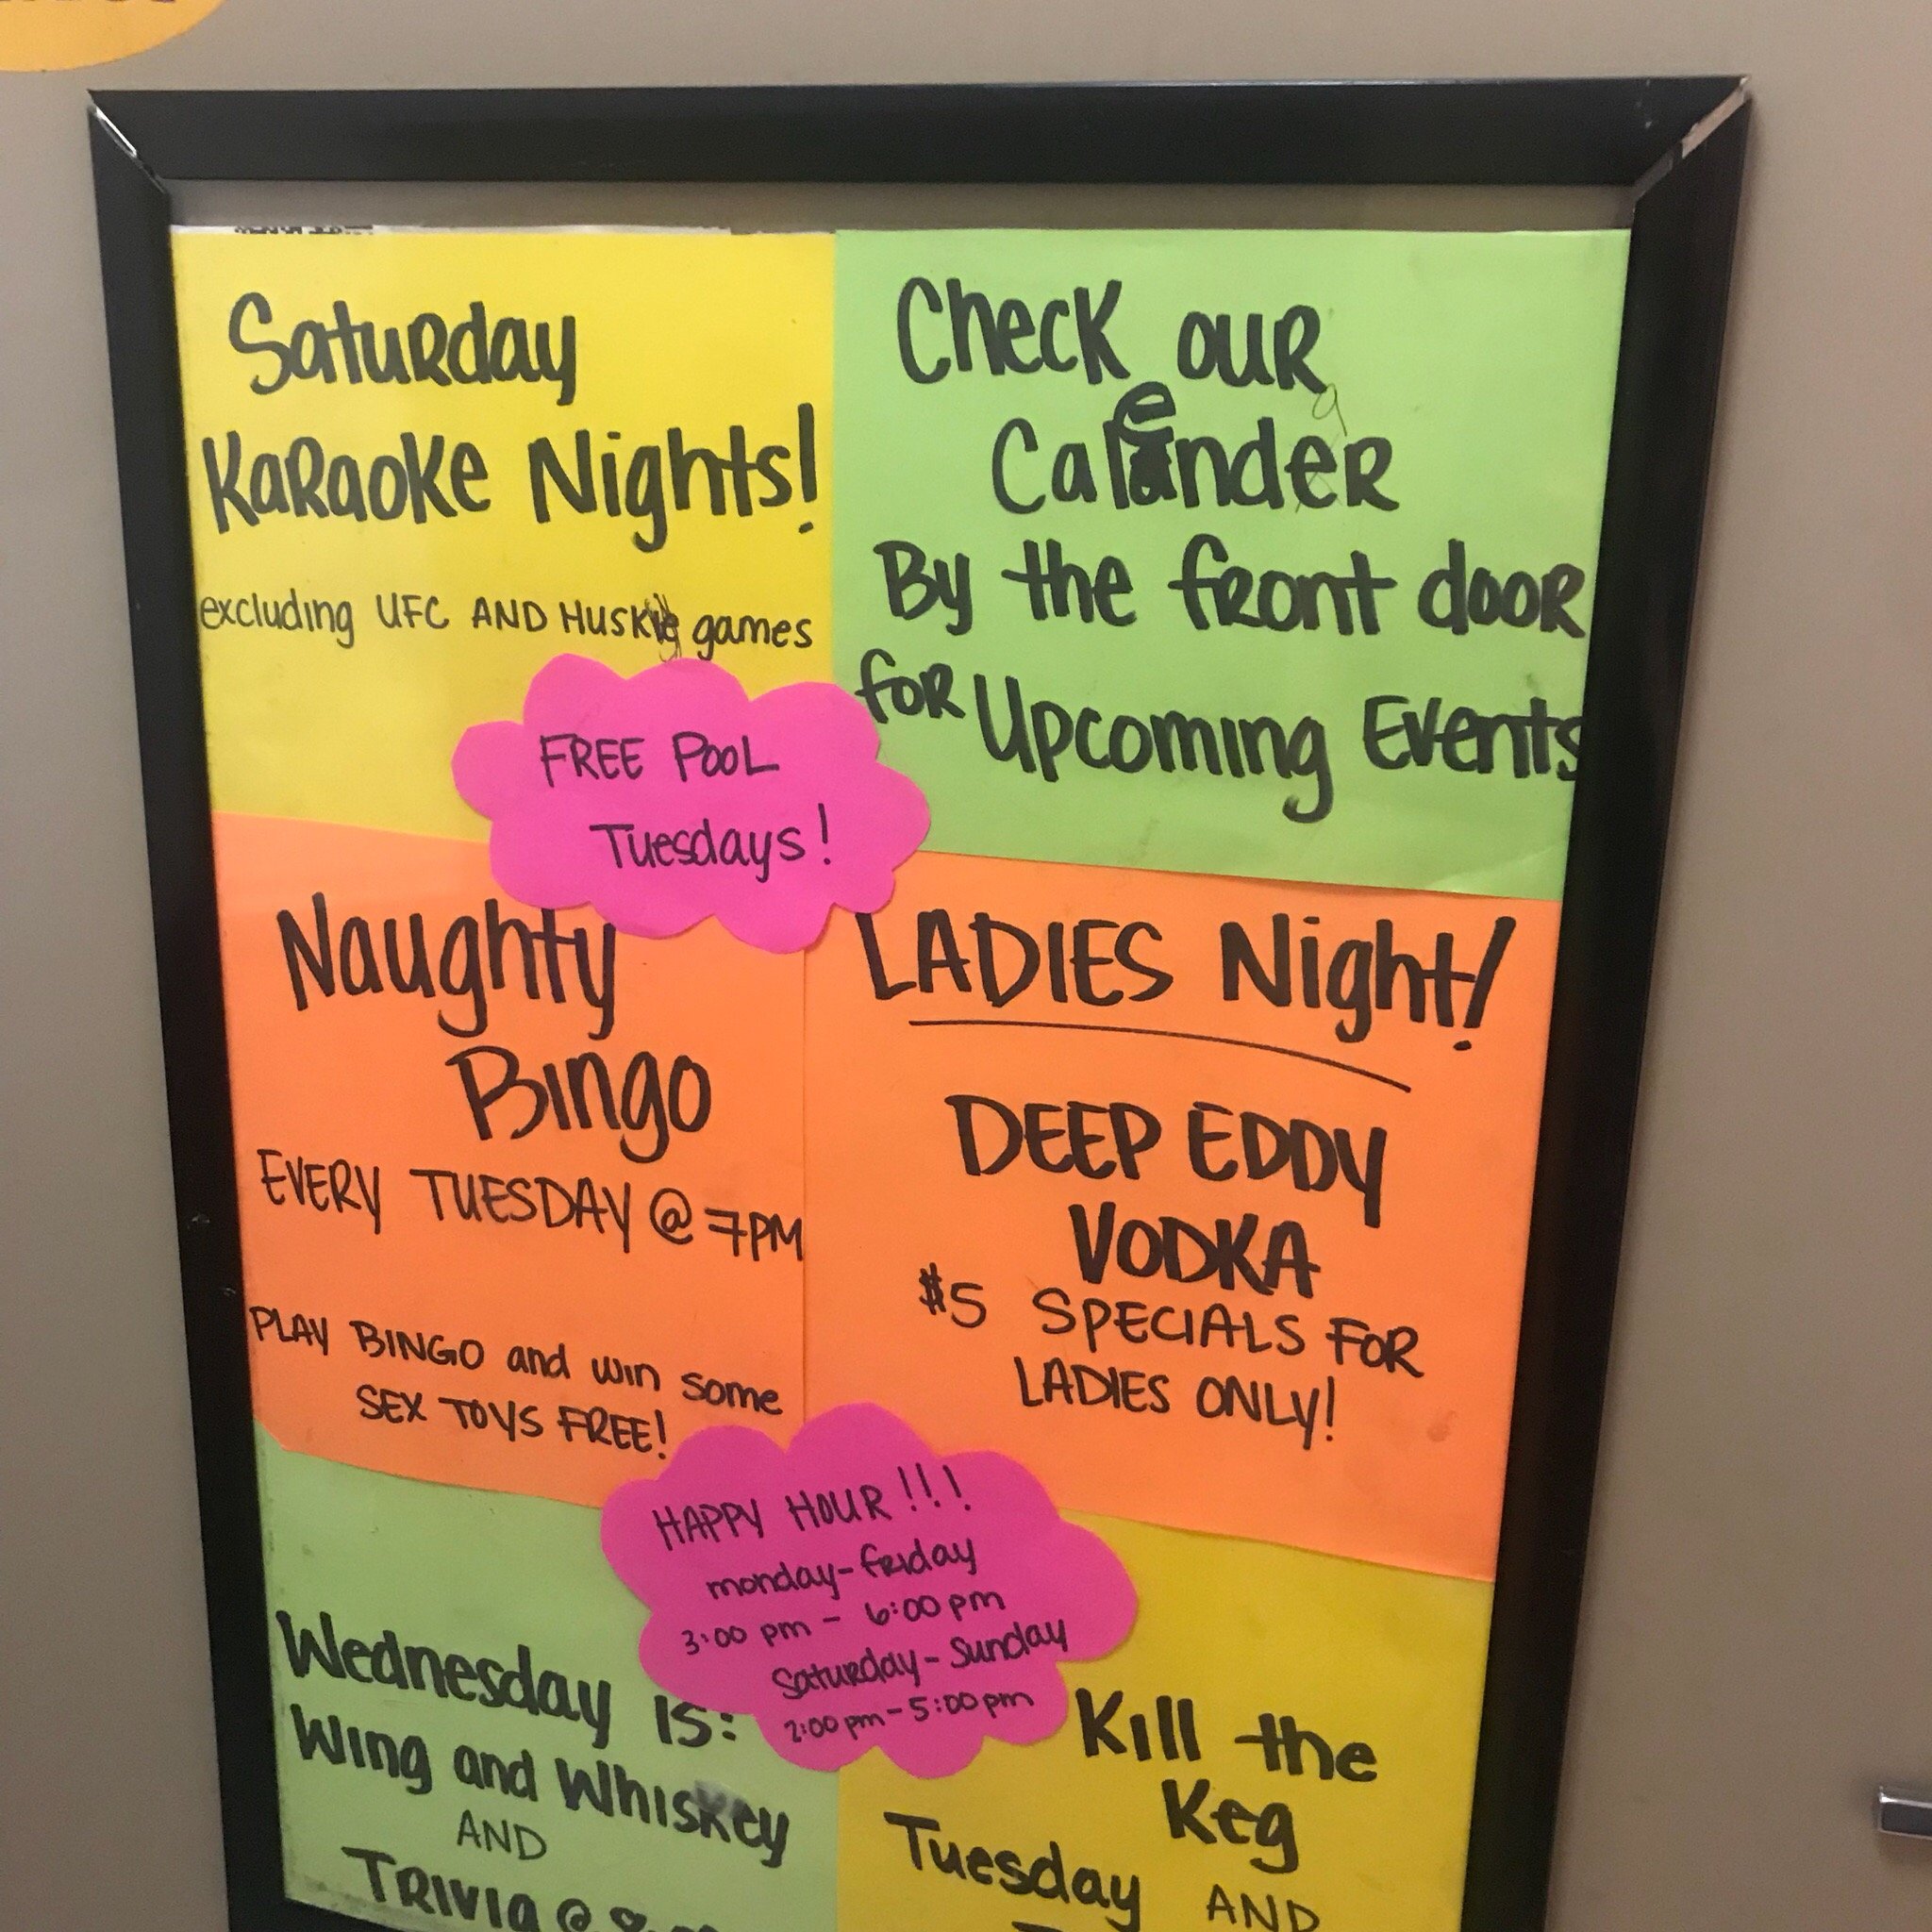 Saturday
Karaoke Nights!
excluding UFC AND HUSKie games
Check our
Calender
By the front door
for Upcoming Events
FREE POOL
Tuesdays!
Naughty
Bingo
EVERY TUESDAY @ 7PM
PLAY BINGO and win some
SEX TOYS FREE!
LADIES Night!
DEEP EDDY
VODKA
$5 SPECIALS FOR
LADIES ONLY!
HAPPY HOUR!!!
monday-friday
3:00 pm - 6:00 pm
Saturday-Sunday
2:00 pm-5:00 pm
Wednesday is:
Wing and Whiskey
AND
TRIVIA @
Kill the
Keg
Tuesday AND